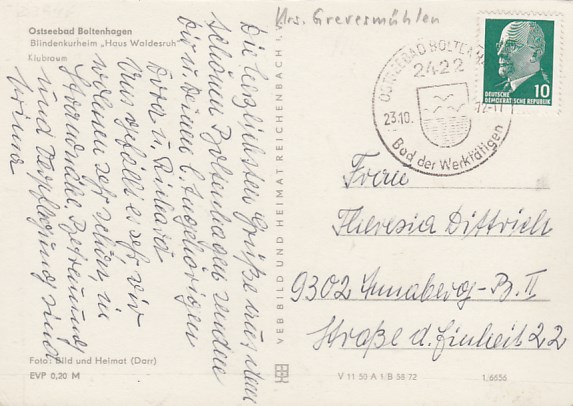 Ostseebad Boltenhagen
Blindenkurheim „Haus Waldesruh"
Klubraum
Krs. Grevesmühlen
OSTSEEBAD BOLTENHAGEN
2422
23.10.
Bad der Werktätigen
DEUTSCHE
DEMOKRATISCHE REPUBLIK
10
Die herzlichsten Grüße aus dem
schönen Boltenhagen senden
dir u. deinen Angehörigen
Dora u. Richard
Uns gefällt es sehr wir
wohnen sehr schön, in
Strandnähe, Betreuung
und Verpflegung sind
prima
VEB BILD UND HEIMAT REICHENBACH I. V.
Frau
Theresia Dittrich
9302 Annaberg-B. II
Straße d. Einheit 22
Foto: Bild und Heimat (Darr)
EVP 0,20 M
V 11 50 A 1/B 58/72
1/6656